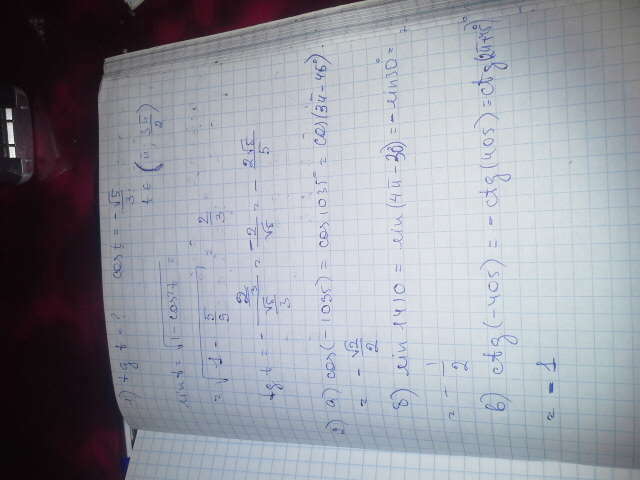 1) tg t - ? cos t = - √5/3; t ∈ (π; 3π/2)
sin t = √(1 - cos²t) =
= √(1 - 5/9) = 2/3;
tg t = - (2/3)/(√5/3) = - 2/√5 = - 2√5/5
2) a) cos(-1035) = cos 1035° = cos(3π - 45°).
= - √2/2
б) sin 1410 = sin(4π - 30) = - sin 30° =
= - 1/2
в) ctg(-405) = - ctg(405) = ctg(2π+45°)
= - 1